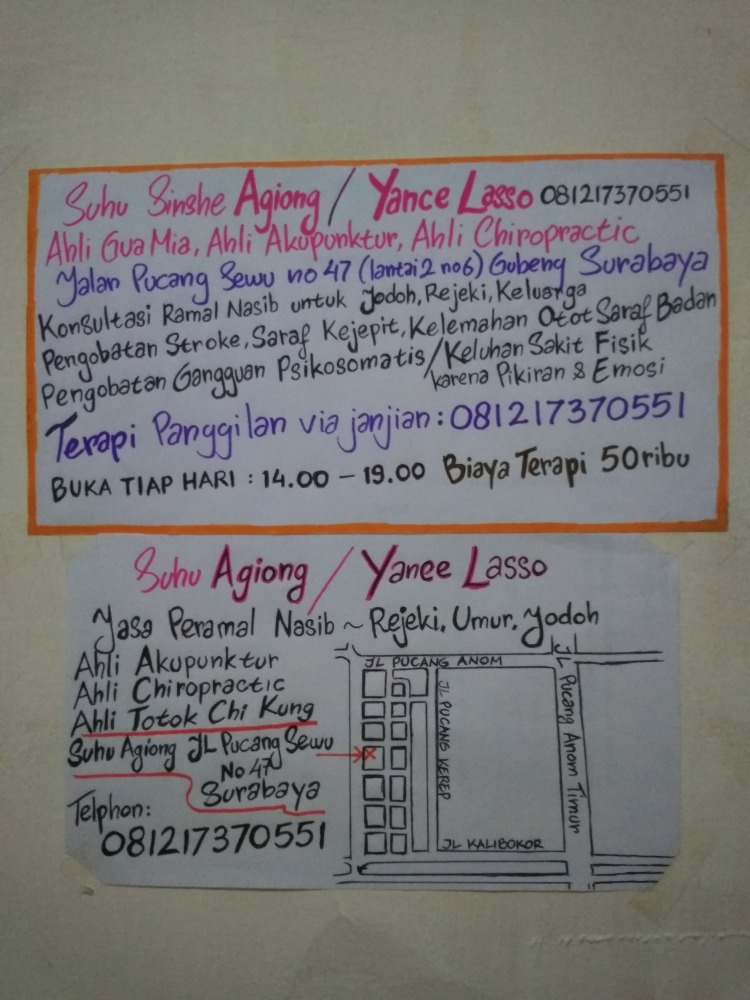 Suhu Sinshe Agiong / Yance Lasso 081217370551
Ahli Gua Mia, Ahli Akupunktur, Ahli Chiropractic
Jalan Pucang Sewu no 47 (lantai 2 no 6) Gubeng Surabaya
Konsultasi Ramal Nasib untuk Jodoh, Rejeki, Keluarga
Pengobatan Stroke, Saraf Kejepit, Kelemahan Otot Saraf Badan
Pengobatan Gangguan Psikosomatis / Keluhan Sakit Fisik
karena Pikiran & Emosi
Terapi Panggilan via janjian : 081217370551
BUKA TIAP HARI : 14.00 - 19.00 Biaya Terapi 50 ribu
Suhu Agiong / Yanee Lasso
Jasa Peramal Nasib ~ Rejeki, Umur, Jodoh
Ahli Akupunktur
Ahli Chiropractic
Ahli Totok Chi Kung
Suhu Agiong JL Pucang Sewu
No 47
Surabaya
Telphon:
081217370551
JL PUCANG ANOM
JL PUCANG KEREP
JL Pucang Anom Timur
JL KALIBOKOR